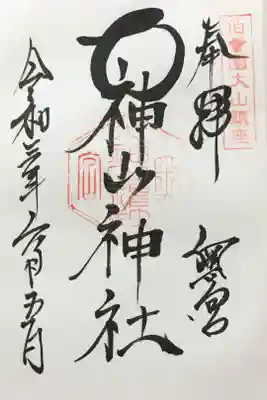 伯耆国大山鎮座
奉拝
奥宮
大神山神社
令和 年六月五日